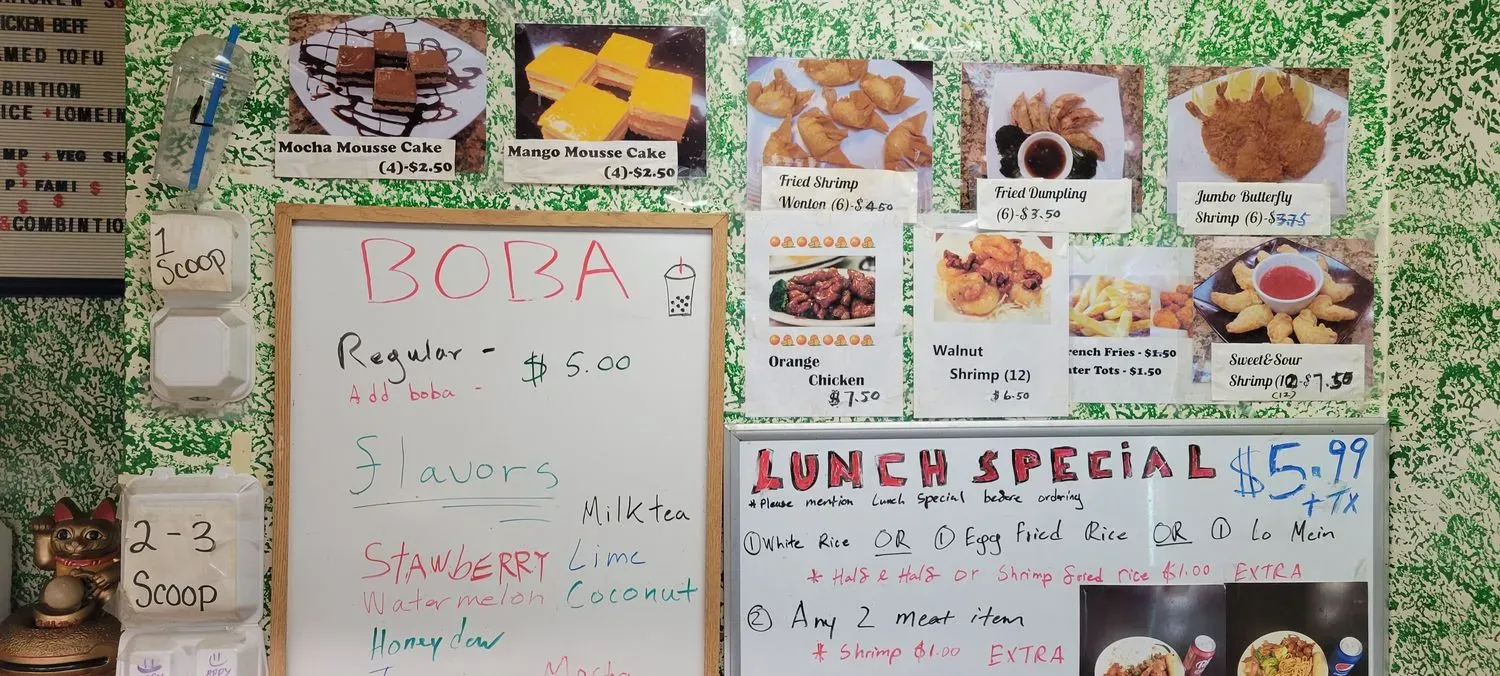 ICKEN BEEF
MED TOFU
BINTION
ICE + LOMEIN
MP + VEG SH
$
P + FAMI $
$ $
&COMBINTIO
L
1
SCOOP
2-3
Scoop
Mocha Mousse Cake
(4)-$2.50
Mango Mousse Cake
(4)-$2.50
Fried Shrimp
Wonton (6)-$4.50
Fried Dumpling
(6)-$3.50
Jumbo Butterfly
Shrimp (6)-$3.75
Orange
Chicken
$7.50
Walnut
Shrimp (12)
$6.50
rench Fries - $1.50
ater Tots - $1.50
Sweet&Sour
Shrimp (12)-$7.50
(12)
BOBA
Regular - $5.00
Add boba -
flavors
Milk tea
STAWBERRY Lime
Watermelon Coconut
Honeydew
Mocha
LUNCH SPECIAL $5.99
+TX
*Please mention Lunch Special before ordering
① White Rice OR ① Egg Fried Rice OR ① Lo Mein
* Half & Half or Shrimp fried rice $1.00 EXTRA
② Any 2 meat item
* Shrimp $1.00 EXTRA